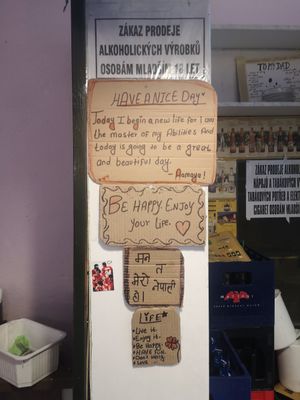 ZÁKAZ PRODEJE
ALKOHOLICKÝCH VÝROBKŮ
OSOBÁM MLADŠÍM 18 LET
HAVE A NICE DAY
Today I begin a new life for I am
the master of my Abilities And
today is going to be a great
and beautiful day.
BE HAPPY ENJOY
your life.
मन त
मेरो नेपाली
हो।
LIFE
Live it.
Enjoy it.
Be Happy.
HAVE FUN.
Don't worry.
Love
TOM DAD
ZÁKAZ PRODEJE
NÁPOJŮ A TABÁKOVÝCH